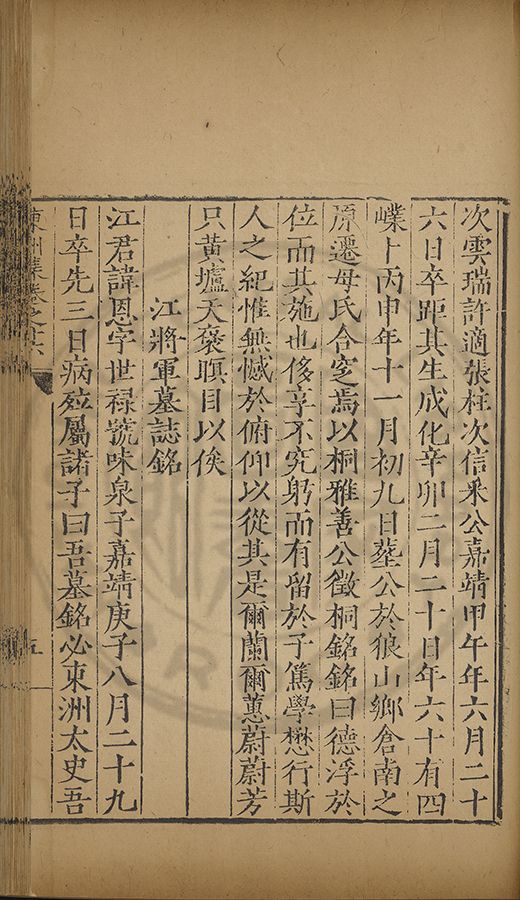 次雲瑞許適張柱次信釆公嘉靖甲午年六月二十
六日卒距其生成化辛卯二月二十日年六十有四
嵘卜丙申年十一月初九日塟公於狼山鄉倉南之
原遷母氏合窆焉以桐雅善公徵桐銘銘曰德浮於
位而其施也侈享不究躬而有留於子篤學懋行斯
人之紀惟無憾於俯仰以從其是爾蘭爾蕙蔚蔚芳
只黃壚天襃瞑目以俟
江將軍墓誌銘
江君諱恩字世祿號味泉子嘉靖庚子八月二十九
日卒先三日病㱝屬諸子曰吾墓銘必東洲太史吾
東洲集卷之十六
五